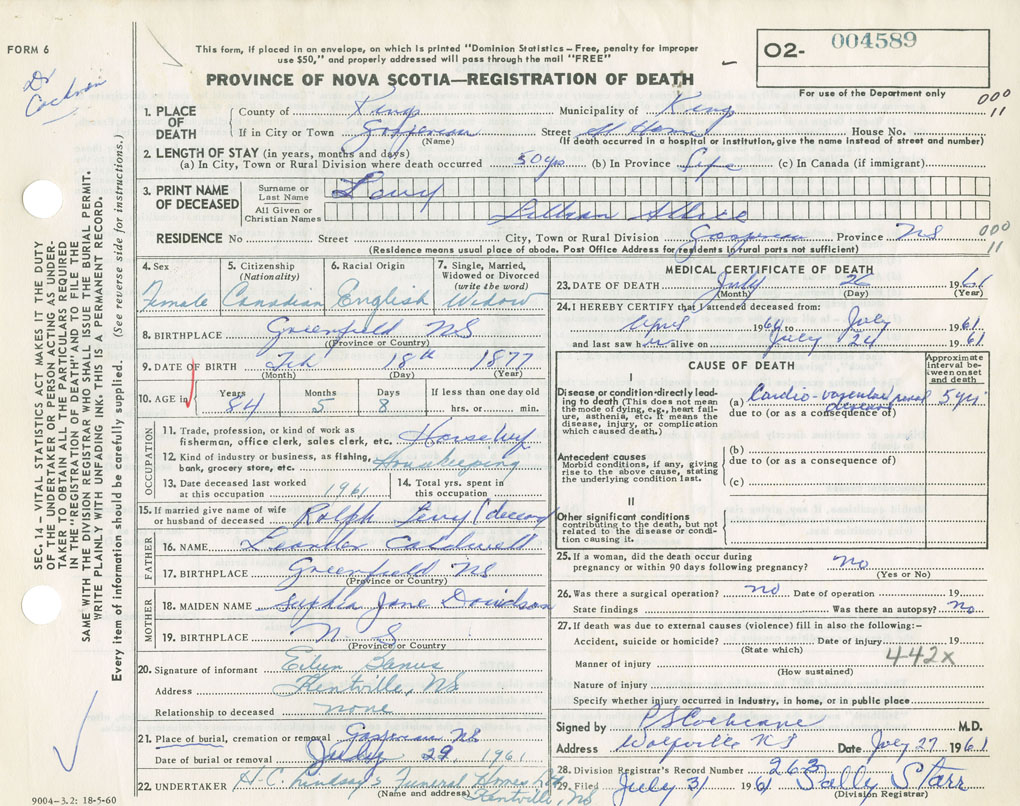 FORM 6
Dr Cochran
This form, if placed in an envelope, on which is printed "Dominion Statistics – Free, penalty for improper
use $50," and properly addressed will pass through the mail "FREE"
PROVINCE OF NOVA SCOTIA—REGISTRATION OF DEATH
O2- 004589
For use of the Department only
000
11
1. PLACE OF DEATH
County of Kings Municipality of Kings
If in City or Town Gaspereau Street At Home House No.
(Name) (If death occurred in a hospital or institution, give the name instead of street and number)
2. LENGTH OF STAY (in years, months and days)
(a) In City, Town or Rural Division where death occurred 50 yrs (b) In Province Life (c) In Canada (if immigrant)
3. PRINT NAME OF DECEASED
Surname or Last Name Levy
All Given or Christian Names Lillian
RESIDENCE No Street City, Town or Rural Division Gaspereau Province NS
000
11
(Residence means usual place of abode. Post Office Address for residents of rural parts not sufficient)
4. Sex Female
5. Citizenship (Nationality) Canadian
6. Racial Origin English
7. Single, Married, Widowed or Divorced (write the word) Widow
8. BIRTHPLACE Greenfield NS
(Province or Country)
9. DATE OF BIRTH Feb 18th 1877
(Month) (Day) (Year)
10. AGE in Years 84 Months 5 Days 8 If less than one day old hrs. or min.
OCCUPATION
11. Trade, profession, or kind of work as fisherman, office clerk, sales clerk, etc. Housewife
12. Kind of industry or business, as fishing, bank, grocery store, etc. Housekeeping
13. Date deceased last worked at this occupation 1961
14. Total yrs. spent in this occupation
15. If married give name of wife or husband of deceased Ralph Levy (deceas)
FATHER
16. NAME Leander Caldwell
17. BIRTHPLACE Greenfield NS
(Province or Country)
MOTHER
18. MAIDEN NAME Sophia Jane Davidson
19. BIRTHPLACE N-S
(Province or Country
20. Signature of informant
Address Kentville, NS
Relationship to deceased none
21. Place of burial, cremation or removal Gaspereau NS
Date of burial or removal July 29 1961
22. UNDERTAKER H.C. Lindsay's Funeral Home Ltd
(Name and address) Kentville, NS
9004–3.2: 18-5-60
MEDICAL CERTIFICATE OF DEATH
23. DATE OF DEATH July 26 1961
(Month) (Day) (Year)
24. I HEREBY CERTIFY that I attended deceased from:
April 1960 to July 1961
and last saw her alive on July 24 1961
CAUSE OF DEATH
Approximate interval between onset and death
I
Disease or condition directly leading to death (This does not mean the mode of dying, e.g., heart failure, asthenia, etc. It means the disease, injury, or complication which caused death.)
(a) Cardio-vascular renal disease 5 yrs
due to (or as a consequence of)
Antecedent causes
Morbid conditions, if any, giving rise to the above cause, stating the underlying condition last.
(b)
due to (or as a consequence of)
(c)
II
Other significant conditions
contributing to the death, but not related to the disease or condition causing it.
25. If a woman, did the death occur during pregnancy or within 90 days following pregnancy? no
(Yes or No)
26. Was there a surgical operation? no Date of operation 19
State findings Was there an autopsy? no
27. If death was due to external causes (violence) fill in also the following:–
Accident, suicide or homicide? Date of injury 19
(State which)
442x
Manner of injury
(How sustained)
Nature of injury
Specify whether injury occurred in industry, in home, or in public place
Signed by PS Cochrane M.D.
Address Wolfville NS Date July 27 1961
28. Division Registrar's Record Number 263
29. Filed July 31 1961 Sally Starr
(Division Registrar)
SEC. 14 – VITAL STATISTICS ACT MAKES IT THE DUTY
OF THE UNDERTAKER OR PERSON ACTING AS UNDER-
TAKER TO OBTAIN ALL THE PARTICULARS REQUIRED
IN THE "REGISTRATION OF DEATH" AND TO FILE THE
SAME WITH THE DIVISION REGISTRAR WHO SHALL ISSUE THE BURIAL PERMIT.
WRITE PLAINLY WITH UNFADING INK. THIS IS A PERMANENT RECORD.
Every item of information should be carefully supplied. (See reverse side for instructions.)